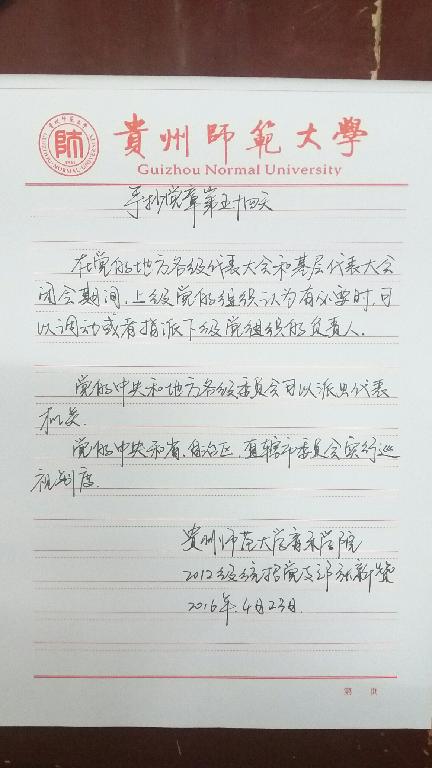 貴州師範大學
Guizhou Normal University
手抄党章第五十四天
在党的地方各级代表大会和基层代表大会
闭会期间,上级党的组织认为有必要时,可
以调动或者指派下级党组织的负责人.
党的中央和地方各级委员会可以派出代表
机关.
党的中央和省、自治区、直辖市委员会实行巡
视制度.
贵州师范大学音乐学院
2012级统招党支部
2016年.4月23日.
第 页